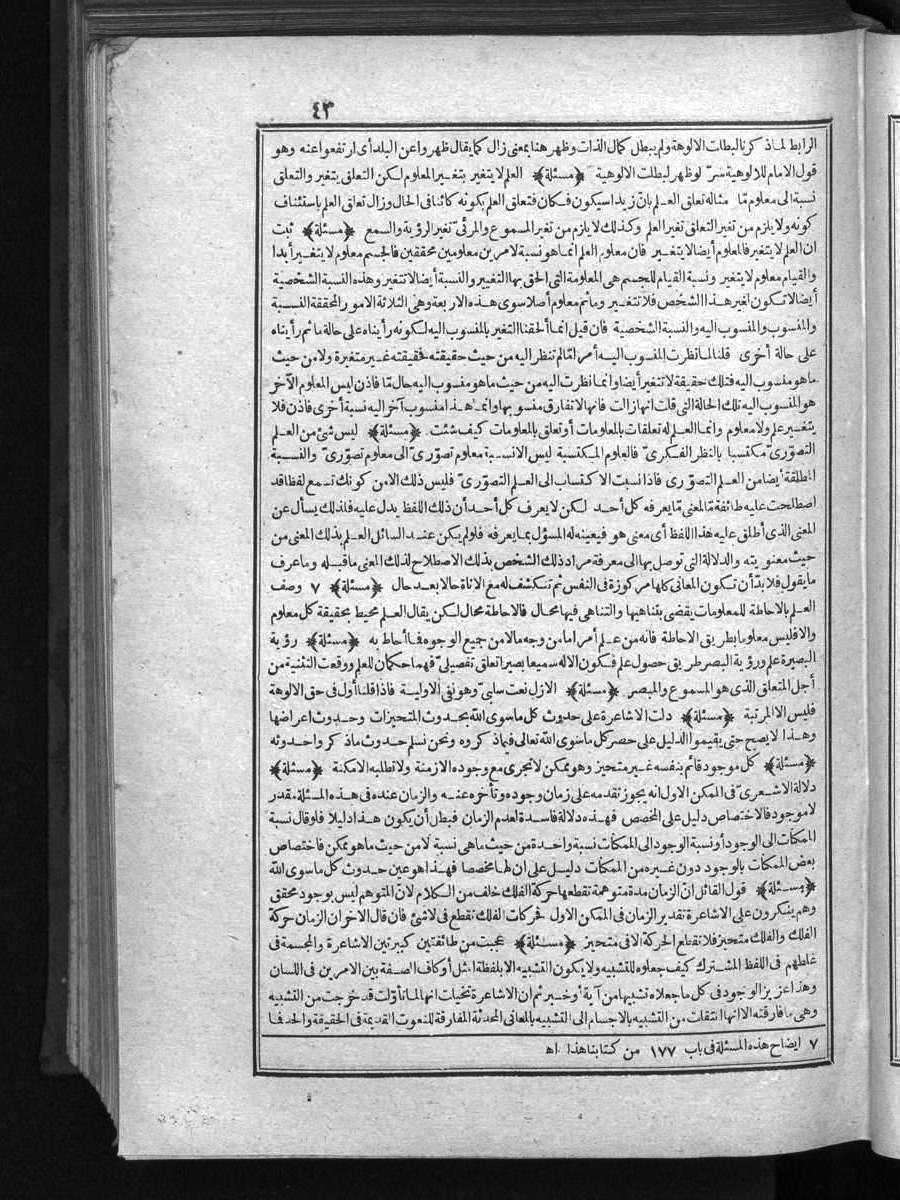 ٤٣
الرابط لما ذكرنا لبطلت الالوهة ولم يبطل كمال الذات وظهر هنا بمعنى زال كما يقال ظهروا عن البلد أى ارتفعوا عنه وهو
قول الامام للالوهية سرّ لو ظهر لبطلت الالوهية ﴿مسئلة﴾ العلم لا يتغير بتغير المعلوم لكن التعلق يتغير والتعلق
نسبة الى معلوم مّا مثاله تعلق العلم بانّ زيدا سيكون فكان فتعلق العلم بكونه كائنا فى الحال وزال تعلق العلم باستئناف
كونه ولا يلزم من تغير التعلق تغير العلم وكذلك لا يلزم من تغير المسموع والمرئىّ تغير الرؤية والسمع ﴿مسئلة﴾ ثبت
ان العلم لا يتغير فالمعلوم أيضا لا يتغير فان معلوم العلم انما هو نسبة لامرين معلومين محققين فالجسم معلوم لا يتغير أبدا
والقيام معلوم لا يتغير ونسبة القيام للجسم هى المعلومة التى الحق بها التغيير والنسبة أيضا لا تتغير وهذه النسبة الشخصية
أيضا لا تكون لغير هذا الشخص فلا تتغير وما ثم معلوم أصلا سوى هذه الاربعة وهى الثلاثة الامور المحققة النسبة
والمنسوب والمنسوب اليه والنسبة الشخصية فان قيل انما ألحقنا التغير بالمنسوب اليه لكونه رأيناه على حالة ما ثم رأيناه
على حالة أخرى قلنا لما نظرت المنسوب اليه أمر امّا لم تنظر اليه من حيث حقيقته فحقيقته غير متغيرة ولا من حيث
ما هو منسوب اليه فتلك حقيقة لا تتغير أيضا وانما نظرت اليه من حيث ما هو منسوب اليه حال مّا فاذن ليس المعلوم الآخر
هو المنسوب اليه تلك الحالة التى قلت انها زالت فانها لا تفارق منسوبها وانما هذا منسوب آخر اليه نسبة أخرى فاذن فلا
يتغير علم ولا معلوم وانما العلم له تعلقات بالمعلومات أو تعلق بالمعلومات كيف شئت ﴿مسئلة﴾ ليس شئ من العلم
التصوّرىّ مكتسبا بالنظر الفكرىّ فالعلوم المكتسبة ليس الا نسبة معلوم تصوّرىّ الى معلوم تصوّرىّ والنسبة
المطلقة أيضا من العلم التصوّرى فاذا نسبت الاكتساب الى العلم التصوّرىّ فليس ذلك الا من كونك تسمع لفظا قد
اصطلحت عليه طائفة مّا لمعنى مّا يعرفه كل أحد لكن لا يعرف كل أحد أن ذلك اللفظ يدل عليه فلذلك يسأل عن
المعنى الذى أطلق عليه هذا اللفظ أى معنى هو فيعينه له المسؤل بما يعرفه فلو لم يكن عند السائل العلم بذلك المعنى من
حيث معنويته والدلالة التى توصل بها الى معرفة مراد ذلك الشخص بذلك الاصطلاح لذلك المعنى ما قبله وما عرف
ما يقول فلا بدّ أن تكون المعانى كلها مركوزة فى النفس ثم تنكشف له مع الاناة حالا بعد حال ﴿مسئلة﴾ ٧ وصف
العلم بالاحاطة للمعلومات يقضى بتناهيها والتناهى فيها محال فالاحاطة محال لكن يقال العلم محيط بحقيقة كل معلوم
والا فليس معلوما بطريق الاحاطة فانه من علم أمر امّا من وجه مّا لا من جميع الوجوه فما أحاط به ﴿مسئلة﴾ رؤية
البصيرة علم ورؤية البصر طريق حصول علم فكون الاله سميعا بصيرا تعلق تفصيلىّ فهما حكمان للعلم ووقعت التثنية من
أجل المتعلق الذى هو المسموع والمبصر ﴿مسئلة﴾ الازل نعت سلبىّ وهو نفى الاولية فاذا قلنا أول فى حق الالوهة
فليس الا المرتبة ﴿مسئلة﴾ دلت الاشاعرة على حدوث كل ما سوى الله بحدوث المتحيزات وحدوث اعراضها
وهذا لا يصح حتى يقيموا الدليل على حصر كل ما سوى الله تعالى فيما ذكروه ونحن نسلم حدوث ما ذكروا حدوثه
﴿مسئلة﴾ كل موجود قائم بنفسه غير متحيز وهو ممكن لا تجرى مع وجوده الازمنة ولا تطلبه الامكنة ﴿مسئلة﴾
دلالة الاشعرىّ فى الممكن الاول انه يجوز تقدمه على زمان وجوده وتأخره عنه والزمان عنده فى هذه المسئلة مقدر
لا موجود فالاختصاص دليل على المخصص فهذه دلالة فاسدة لعدم الزمان فبطل أن يكون هذا دليلا فلو قال نسبة
الممكنات الى الوجود أو نسبة الوجود الى الممكنات نسبة واحدة من حيث ما هى نسبة لا من حيث ما هو ممكن فاختصاص
بعض الممكنات بالوجود دون غيره من الممكنات دليل على ان لها مخصصا فهذا هو عين حدوث كل ما سوى الله
﴿مسئلة﴾ قول القائل انّ الزمان مدة متوهمة تقطعها حركة الفلك خلف من الكلام لانّ المتوهم ليس بوجود محقق
وهم ينكرون على الاشاعرة تقدير الزمان فى الممكن الاول فحركات الفلك تقطع فى لا شئ فان قال الآخر ان الزمان حركة
الفلك والفلك متحيز فلا تقطع الحركة الا فى متحيز ﴿مسئلة﴾ عجبت من طائفتين كبيرتين الاشاعرة والمجسمة فى
غلطهم فى اللفظ المشترك كيف جعلوه للتشبيه ولا يكون التشبيه الا بلفظة المثل أو كاف الصفة بين الامرين فى اللسان
وهذا عزيز الوجود فى كل ما جعلاه تشبيها من آية أو خبر ثم ان الاشاعرة تخيلت انها لما تأوّلت قد خرجت من التشبيه
وهى ما فارقته الا انها انتقلت من التشبيه بالاجسام الى التشبيه بالمعانى المحدثة المفارقة للنعوت القديمة فى الحقيقة والحد فما
٧ ايضاح هذه المسئلة فى باب ١٧٧ من كتابنا هذا اه